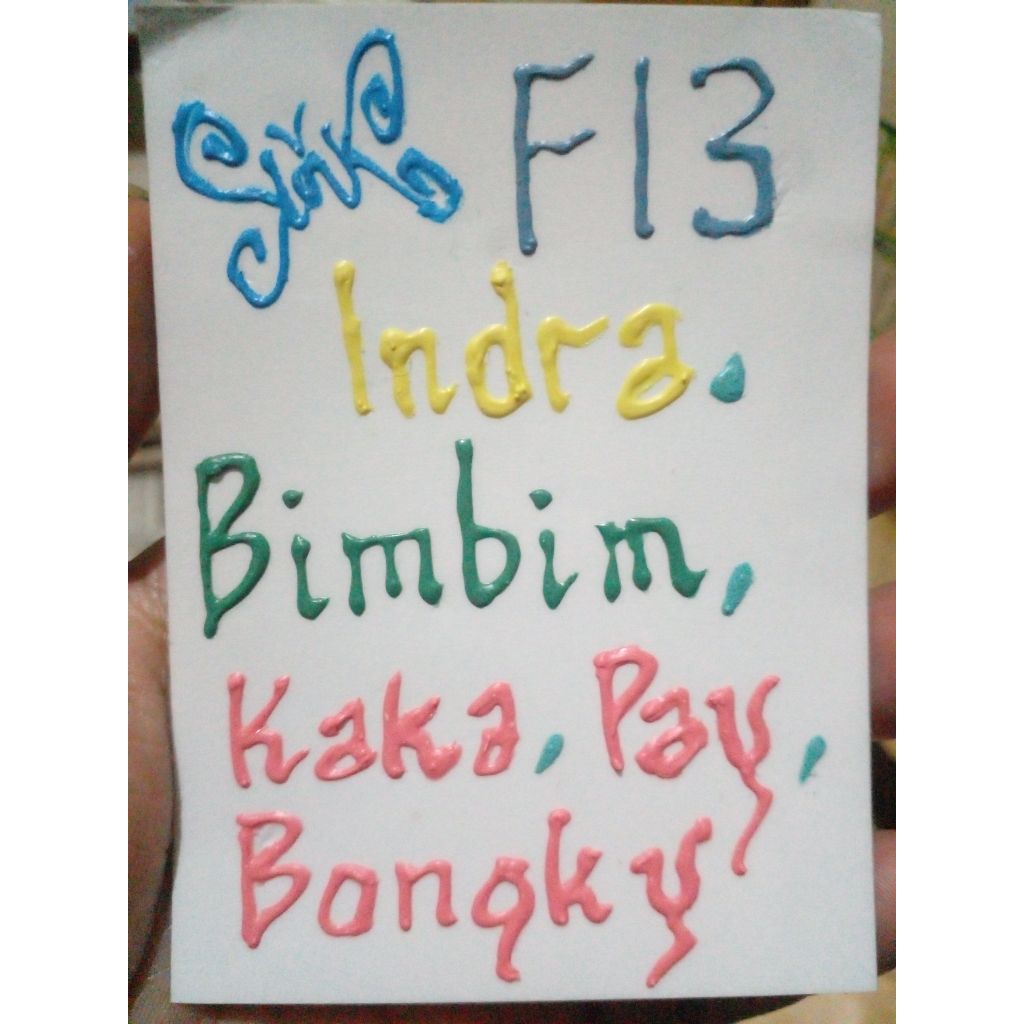 F13
Indra.
Bimbim,
Kaka, Pay,
Bongky